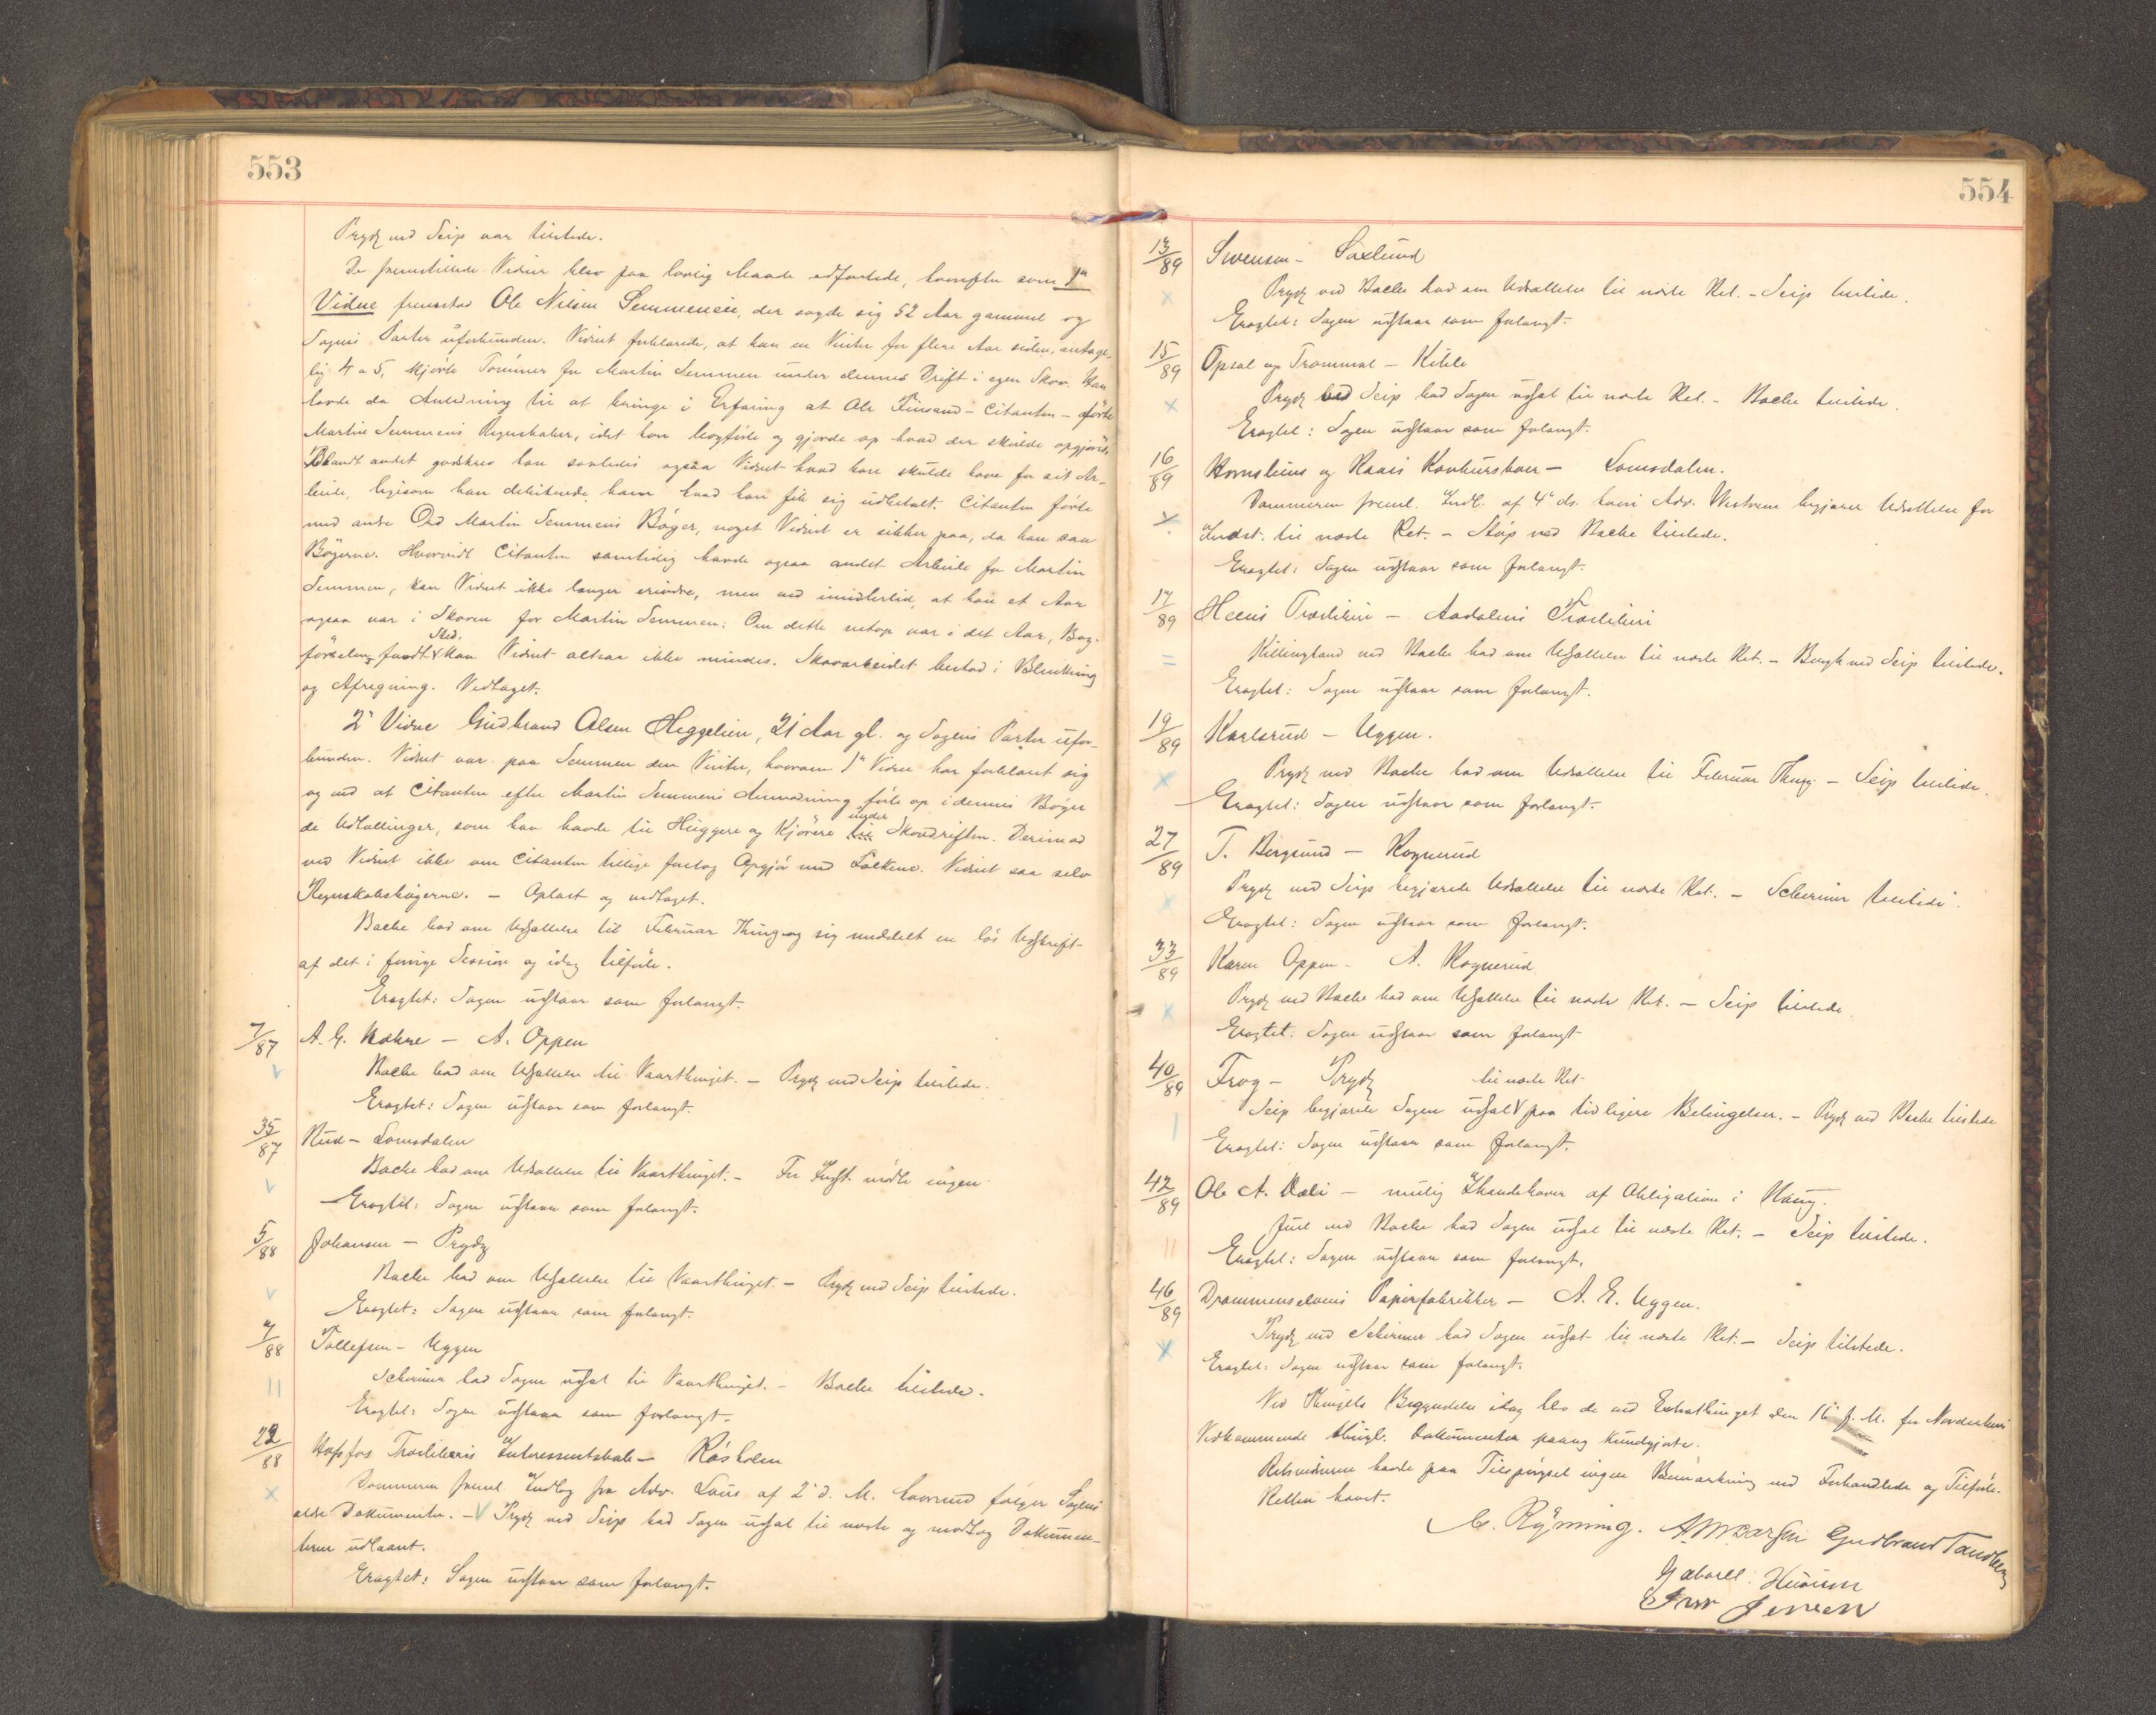 553
Prydz ved Seip var tilstede.
De fremstillede Vidner blev paa lovlig Maade edfæstede, hvorefter som 1ste
Vidne fremstod Ole Nilsen Semmeneie, der sagde sig 52 Aar gammel og
Sagens Parter uforbunden. Vidnet forklarede, at han en Vinter for flere Aar siden, antage-
lig 4 a 5, kjørte Tømmer for Martin Semmen under dennes Drift i egen Skov. Han
havde da Anledning til at bringe i Erfaring at Ole Finsand – Citanten – førte
Martin Semmens Regnskaber, idet han bogførte og gjorde op hvad der skulde opgjøres.
Blandt andet godskrev han saaledes ogsaa Vidnet hvad han skulde have for sit Ar-
beide, ligesom han debiterede ham hvad han fik sig udbetalt. Citanten førte
med andre Ord Martin Semmens Bøger, noget Vidnet er sikker paa, da han saa
Bøgerne. Hvorvidt Citanten samtidig havde ogsaa andet Arbeide for Martin
Semmen, kan Vidnet ikke længer erindre, men ved imidlertid, at han et Aar
ogsaa var i Skoven for Martin Semmen: Om dette netop var i det Aar, Bog-
førselen fandt Sted, kan Vidnet altsaa ikke mindes. Skovarbeidet bestod i Blinkning
og Afregning. Vedtaget.
2det Vidne Gudbrand Olsen Heggelien, 21 Aar gl. og Sagens Parter ufor-
bunden. Vidnet var paa Semmen den Vinter, hvorom 1ste Vidne har forklaret sig
og ved at Citanten efter Martin Semmens Anmodning førte op i dennes Bøger
de Udtællinger, som han havde til Huggere og Kjørere under Skovdriften. Derimod
ved Vidnet ikke om Citanten tillige foretog Opgjør med Folkene. Vidnet saa selv
Regnskabsbøgerne. – Oplæst og vedtaget.
Bache bad om Udsættelse til Februar Thing og sig meddelt en løs Udskrift
af det i forrige Session og idag tilførte.
Eragtet: Sagen udstaar som forlangt.
7/87 A. G. Mohne – A. Oppen
Bache bad om Udsættelse til Vaarthinget. – Prydz ved Seip tilstede.
Eragtet: Sagen udstaar som forlangt.
35/87 Rud – Lomsdalen
Bache bad om Udsættelse til Vaarthinget. – For Indst. mødte ingen.
Eragtet: Sagen udstaar som forlangt.
5/88 Johansen – Prydz
Bache bad om Udsættelse til Vaarthinget. – Prydz ved Seip tilstede.
Eragtet: Sagen udstaar som forlangt.
7/88 Tollefsen – Uggen
Schirmer bad Sagen udsat til Vaarthinget. – Bache tilstede.
Eragtet: Sagen udstaar som forlangt.
22/88 Hofsfos Træsliberis Interessentskab – Rosholm
Dommeren freml. Indlæg fra Adv. Lous af 2d. M. hvormed følger Sagens
ældre Dokumenter. – Prydz ved Seip bad Sagen udsat til næste og modtog Dokumen-
terne udlaant.
Eragtet: Sagen udstaar som forlangt.
554
13/89 Svensen – Saxlund
Prydz ved Bache bad om Udsættelse til næste Ret. – Seip tilstede.
Eragtet: Sagen udstaar som forlangt.
15/89 Opsal og Trommal – Kihle
Prydz ved Seip bad Sagen udsat til næste Ret. – Bache tilstede.
Eragtet: Sagen udstaar som forlangt.
16/89 Hornslins og Raais Konkursboer – Lomsdalen.
Dommeren freml. Indl. af 4de ds. hvori Adv. Westrem begjærer Udsættelse for
Indst. til næste Ret. – Seip ved Bache tilstede.
Eragtet: Sagen udstaar som forlangt.
17/89 Heens Træsliberi – Aadalens Træsliberi
Killingland ved Bache bad om Udsættelse til næste Ret. – Bergh ved Seip tilstede.
Eragtet: Sagen udstaar som forlangt.
19/89 Karlsrud – Uggen.
Prydz ved Bache bad om Udsættelse til Februar Thing. – Seip tilstede.
Eragtet: Sagen udstaar som forlangt.
27/89 T. Bergsund – Rognerud
Prydz ved Seip begjærede Udsættelse til næste Ret. – Schirmer tilstede.
Eragtet: Sagen udstaar som forlangt.
33/89 Karen Oppen – A. Rognerud
Prydz ved Bache bad om Udsættelse til næste Ret. – Seip tilstede.
Eragtet: Sagen udstaar som forlangt
40/89 Frog – Prydz
Seip begjærede Sagen udsat til næste Ret paa tidligere Betingelser. – Prydz ved Bache tilstede
Eragtet: Sagen udstaar som forlangt.
42/89 Ole A. Bæli – mulig Ihændehaver af Obligation i Haug.
Juel ved Bache bad Sagen udsat til næste Ret. – Seip tilstede.
Eragtet: Sagen udstaar som forlangt.
46/89 Drammenselvens Papirfabrikker – A. E. Uggen.
Prydz ved Schirmer bad Sagen udsat til næste Ret. – Seip tilstede.
Eragtet: Sagen udstaar som forlangt.
Ved Thingets Begyndelse idag blev de ved Extrathinget den 16 f. M. for Norderhov
Vedkommende thingl. Dokumenter paany kundgjorte.
Retsvidnerne havde paa Tilspørgsel ingen Bemærkning ved Forhandlede og Tilførte.
Retten hævet.
C. Ryning. A. M. Larsen Gudbrand Tandberg
Gabriel Hurum
Iver Jensen